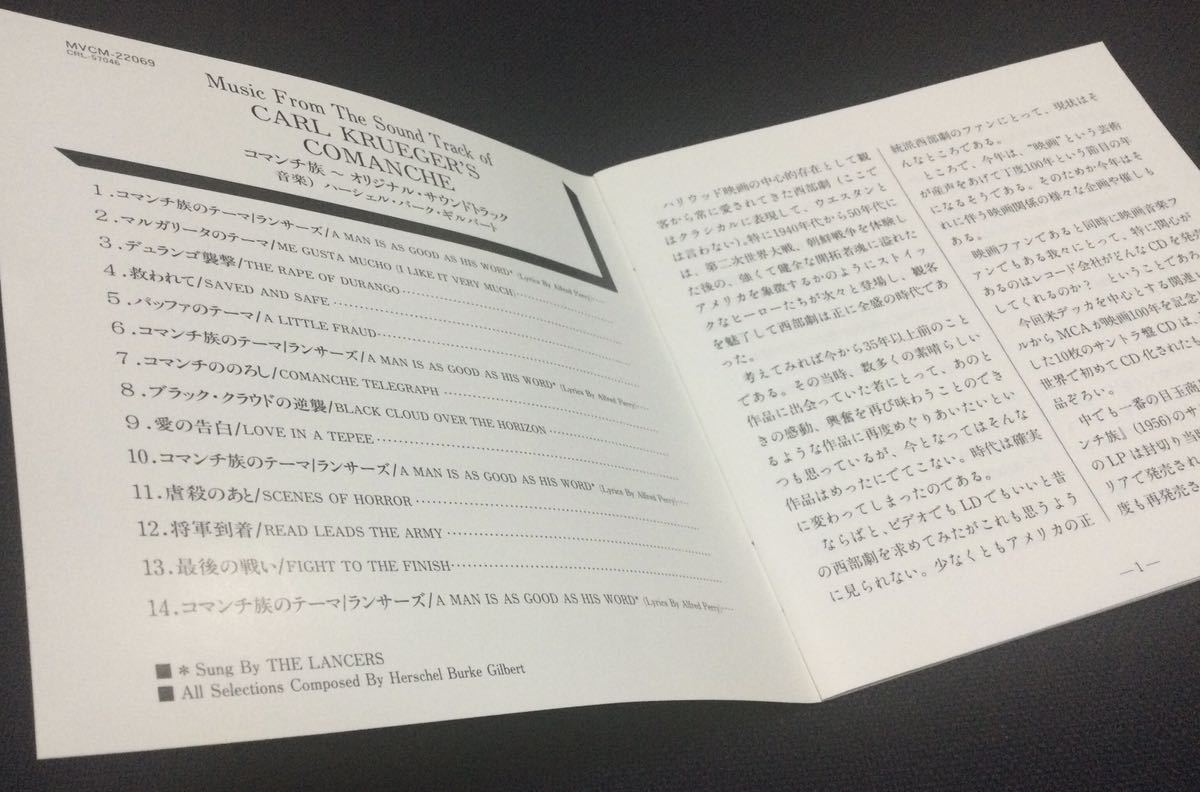 MVCM-22069
CRL-57046
Music From The Sound Track of
CARL KRUEGER'S
COMANCHE
コマンチ族〜オリジナル・サウンドトラック
音楽）ハーシェル・バーク・ギルバート
1.コマンチ族のテーマ|ランサーズ/A MAN IS AS GOOD AS HIS WORD* (Lyrics By Alfred Perry)
2.マルガリータのテーマ/ME GUSTA MUCHO (I LIKE IT VERY MUCH)
3.デュランゴ襲撃/THE RAPE OF DURANGO
4.救われて/SAVED AND SAFE
5.パッファのテーマ/A LITTLE FRAUD
6.コマンチ族のテーマ|ランサーズ/A MAN IS AS GOOD AS HIS WORD* (Lyrics By Alfred Perry)
7.コマンチののろし/COMANCHE TELEGRAPH
8.ブラック・クラウドの逆襲/BLACK CLOUD OVER THE HORIZON
9.愛の告白/LOVE IN A TEPEE
10.コマンチ族のテーマ|ランサーズ/A MAN IS AS GOOD AS HIS WORD* (Lyrics By Alfred Perry)
11.虐殺のあと/SCENES OF HORROR
12.将軍到着/READ LEADS THE ARMY
13.最後の戦い/FIGHT TO THE FINISH
14.コマンチ族のテーマ|ランサーズ/A MAN IS AS GOOD AS HIS WORD* (Lyrics By Alfred Perry)
■ * Sung By THE LANCERS
■ All Selections Composed By Herschel Burke Gilbert
ハリウッド映画の中心的存在として観
客から常に愛されてきた西部劇（ここで
はクラシカルに表現して、ウエスタンと
は言わない)。特に1940年代から50年代に
は、第二次世界大戦、朝鮮戦争を体験し
た後の、強くて健全な開拓者魂に溢れた
アメリカを象徴するかのようにストイッ
クなヒーローたちが次々と登場し、観客
を魅了して西部劇は正に全盛の時代であ
った。
考えてみれば今から35年以上前のこと
である。その当時、数多くの素晴らしい
作品に出会っていた者にとって、あのと
きの感動、興奮を再び味わうことのでき
るような作品に再度めぐりあいたいとい
つも思っているが、今となってはそんな
作品はめったにでてこない。時代は確実
に変わってしまったのである。
ならばと、ビデオでもLDでもいいと昔
の西部劇を求めてみたがこれも思うよう
に見られない。少なくともアメリカの正
統派西部劇のファンにとって、現状はそ
んなところである。
ところで、今年は、"映画"という芸術
が産声をあげて丁度100年という節目の年
になるそうである。そのためか今年はそ
れに伴う映画関係の様々な企画や催しも
ある。
映画ファンであると同時に映画音楽フ
ァンでもある我々にとって、特に関心が
あるのはレコード会社がどんなCDを発売
してくれるのか？　ということであろ
今回米デッカを中心とする関連
ルからMCAが映画100年を記念
した10枚のサントラ盤CDは、
世界で初めてCD化されたも
品ぞろい。
中でも一番の目玉商
ンチ族』(1956)のサ
のLPは封切り当
リアで発売され
度も再発売さ
—1—